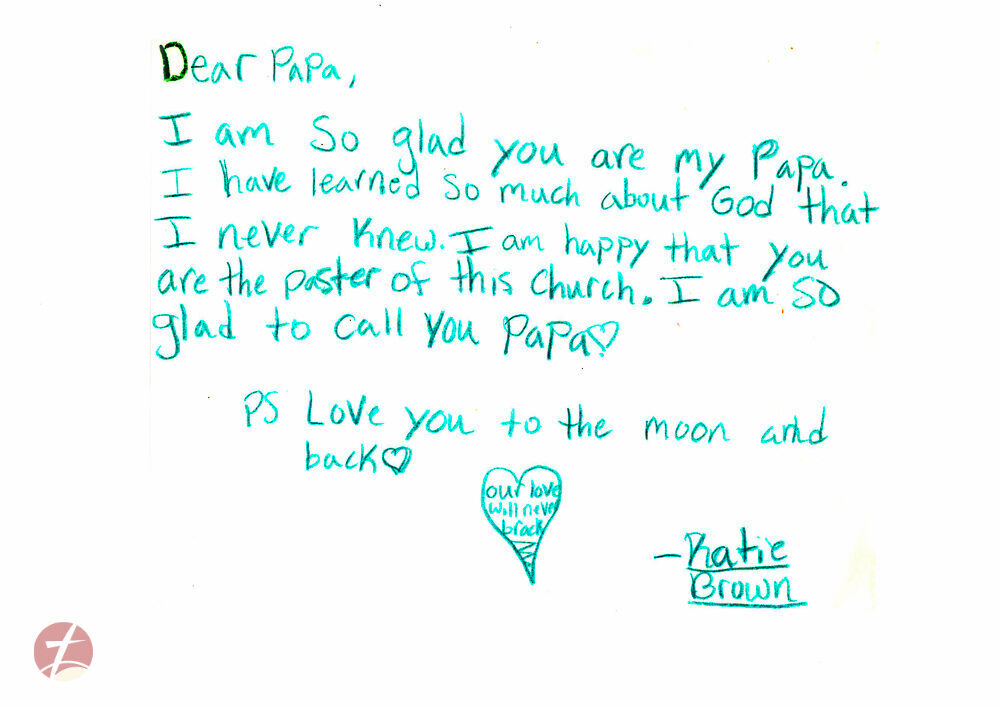 Dear Papa,
I am so glad you are my Papa.
I have learned so much about God that
I never knew. I am happy that you
are the paster of this church. I am so
glad to call you Papa♡
PS Love you to the moon and
back♡
our love
will never
brack
-Katie
Brown